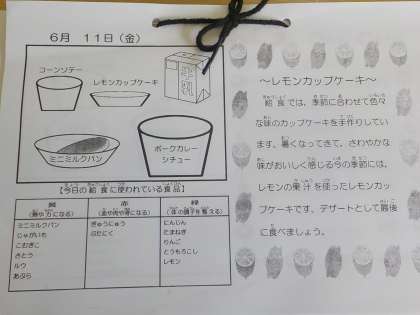 6月 11日(金)
コーンソテー
レモンカップケーキ
ミニミルクパン
ポークカレー
シチュー
【今日の給食に使われている食品】
黄
(熱や力になる)
赤
(血や肉や骨になる)
緑
(体の調子を整える)
ミニミルクパン
じゃがいも
こむぎこ
さとう
ルウ
あぶら
ぎゅうにゅう
ぶたにく
にんじん
たまねぎ
りんご
とうもろこし
レモン
～レモンカップケーキ～
給食では、季節に合わせて色々
な味のカップケーキを手作りしてい
ます。暑くなってきて、さわやかな
味がおいしく感じる今の季節には、
レモンの果汁を使ったレモンカッ
プケーキです。デザートとして最後
に食べましょう。